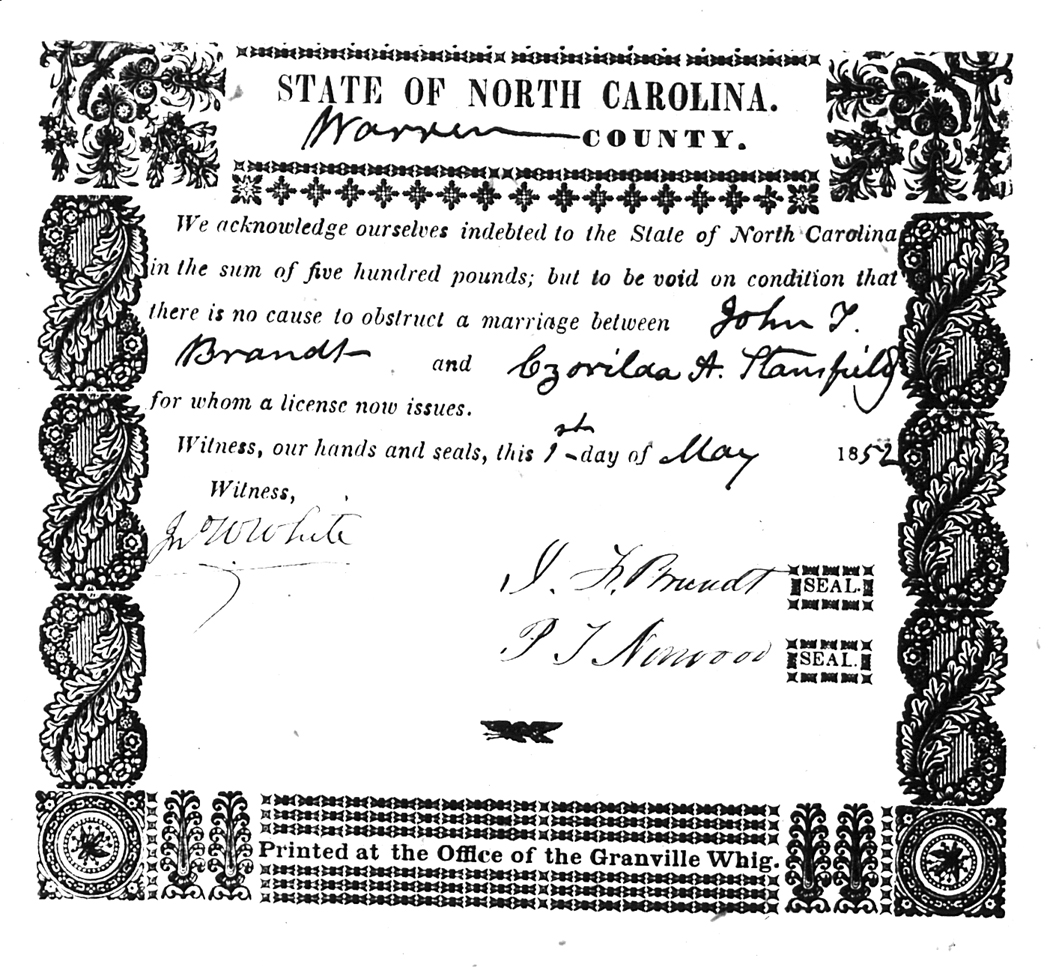 STATE OF NORTH CAROLINA.
Warren COUNTY.
We acknowledge ourselves indebted to the State of North Carolina
in the sum of five hundred pounds; but to be void on condition that
there is no cause to obstruct a marriage between John T.
Brandt and Czorilda A. Stansfield
for whom a license now issues.
Witness, our hands and seals, this 1st day of May 1852
Witness,
Jno W White
J. F. Brandt SEAL.
P T Norwood SEAL.
Printed at the Office of the Granville Whig.